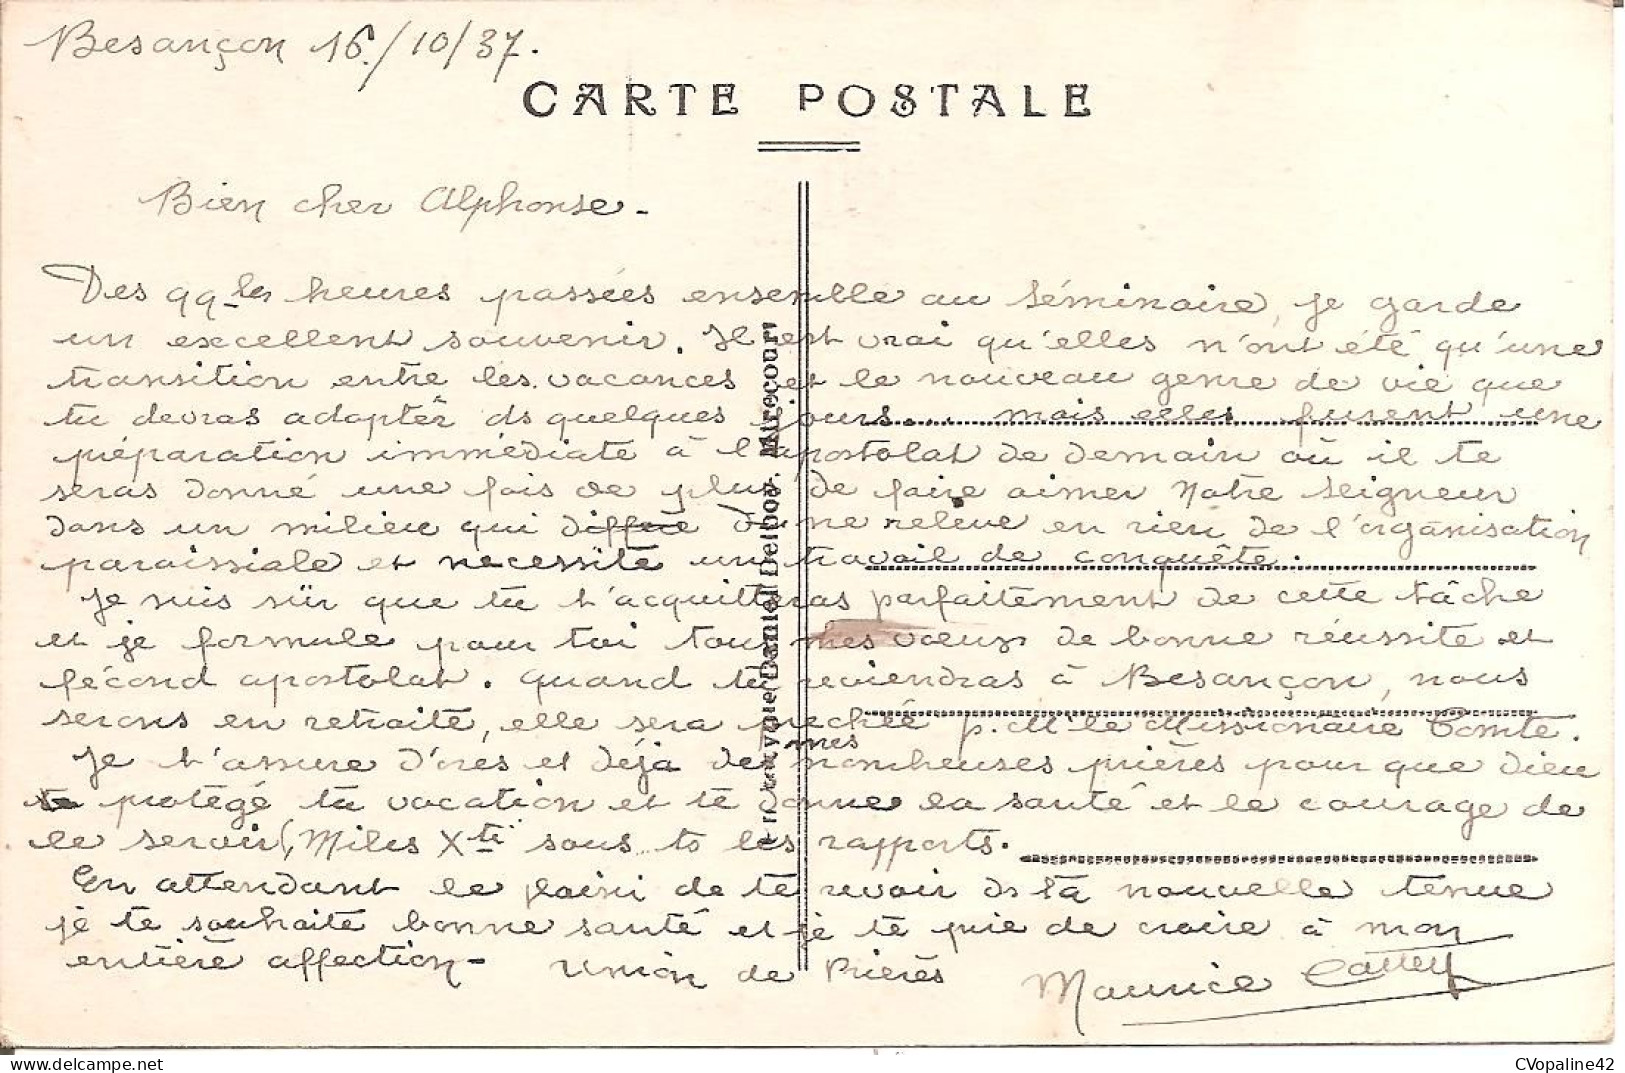 Besançon 16/10/37.
CARTE POSTALE
Bien cher Alphonse -
Des qq les heures passées ensemble au séminaire, je garde
un excellent souvenir. Il est vrai qu'elles n'ont été qu'une
transition entre les vacances et le nouveau genre de vie que
tu devras adopter ds quelques jours... mais elles furent une
préparation immédiate à l'apostolat de demain où il te
seras donné une fois de plus de faire aimer Notre Seigneur
dans un milieu qui diffère ne relève en rien de l'organisation
paroissiale et nécessite un travail de conquête.
Je suis sûr que tu t'acquitteras parfaitement de cette tâche
et je formule pour toi tous mes voeux de bonne réussite et
fécond apostolat. Quand tu reviendras à Besançon, nous
serons en retraite, elle sera prechée p. M'le Missionnaire Comte.
Je t'assure d'ores et déjà de mes nombreuses prières pour que Dieu
protège ta vocation et te donne la santé et le courage de
le servir (Miles Xti) sous ts les rapports.
En attendant le plaisir de te revoir ds ta nouvelle tenue
je te souhaite bonne santé et je te prie de croire à mon
entière affection - Union de Prières
Maurice Cattey
Daniel Delboy, Mirecourt
CVopaline42